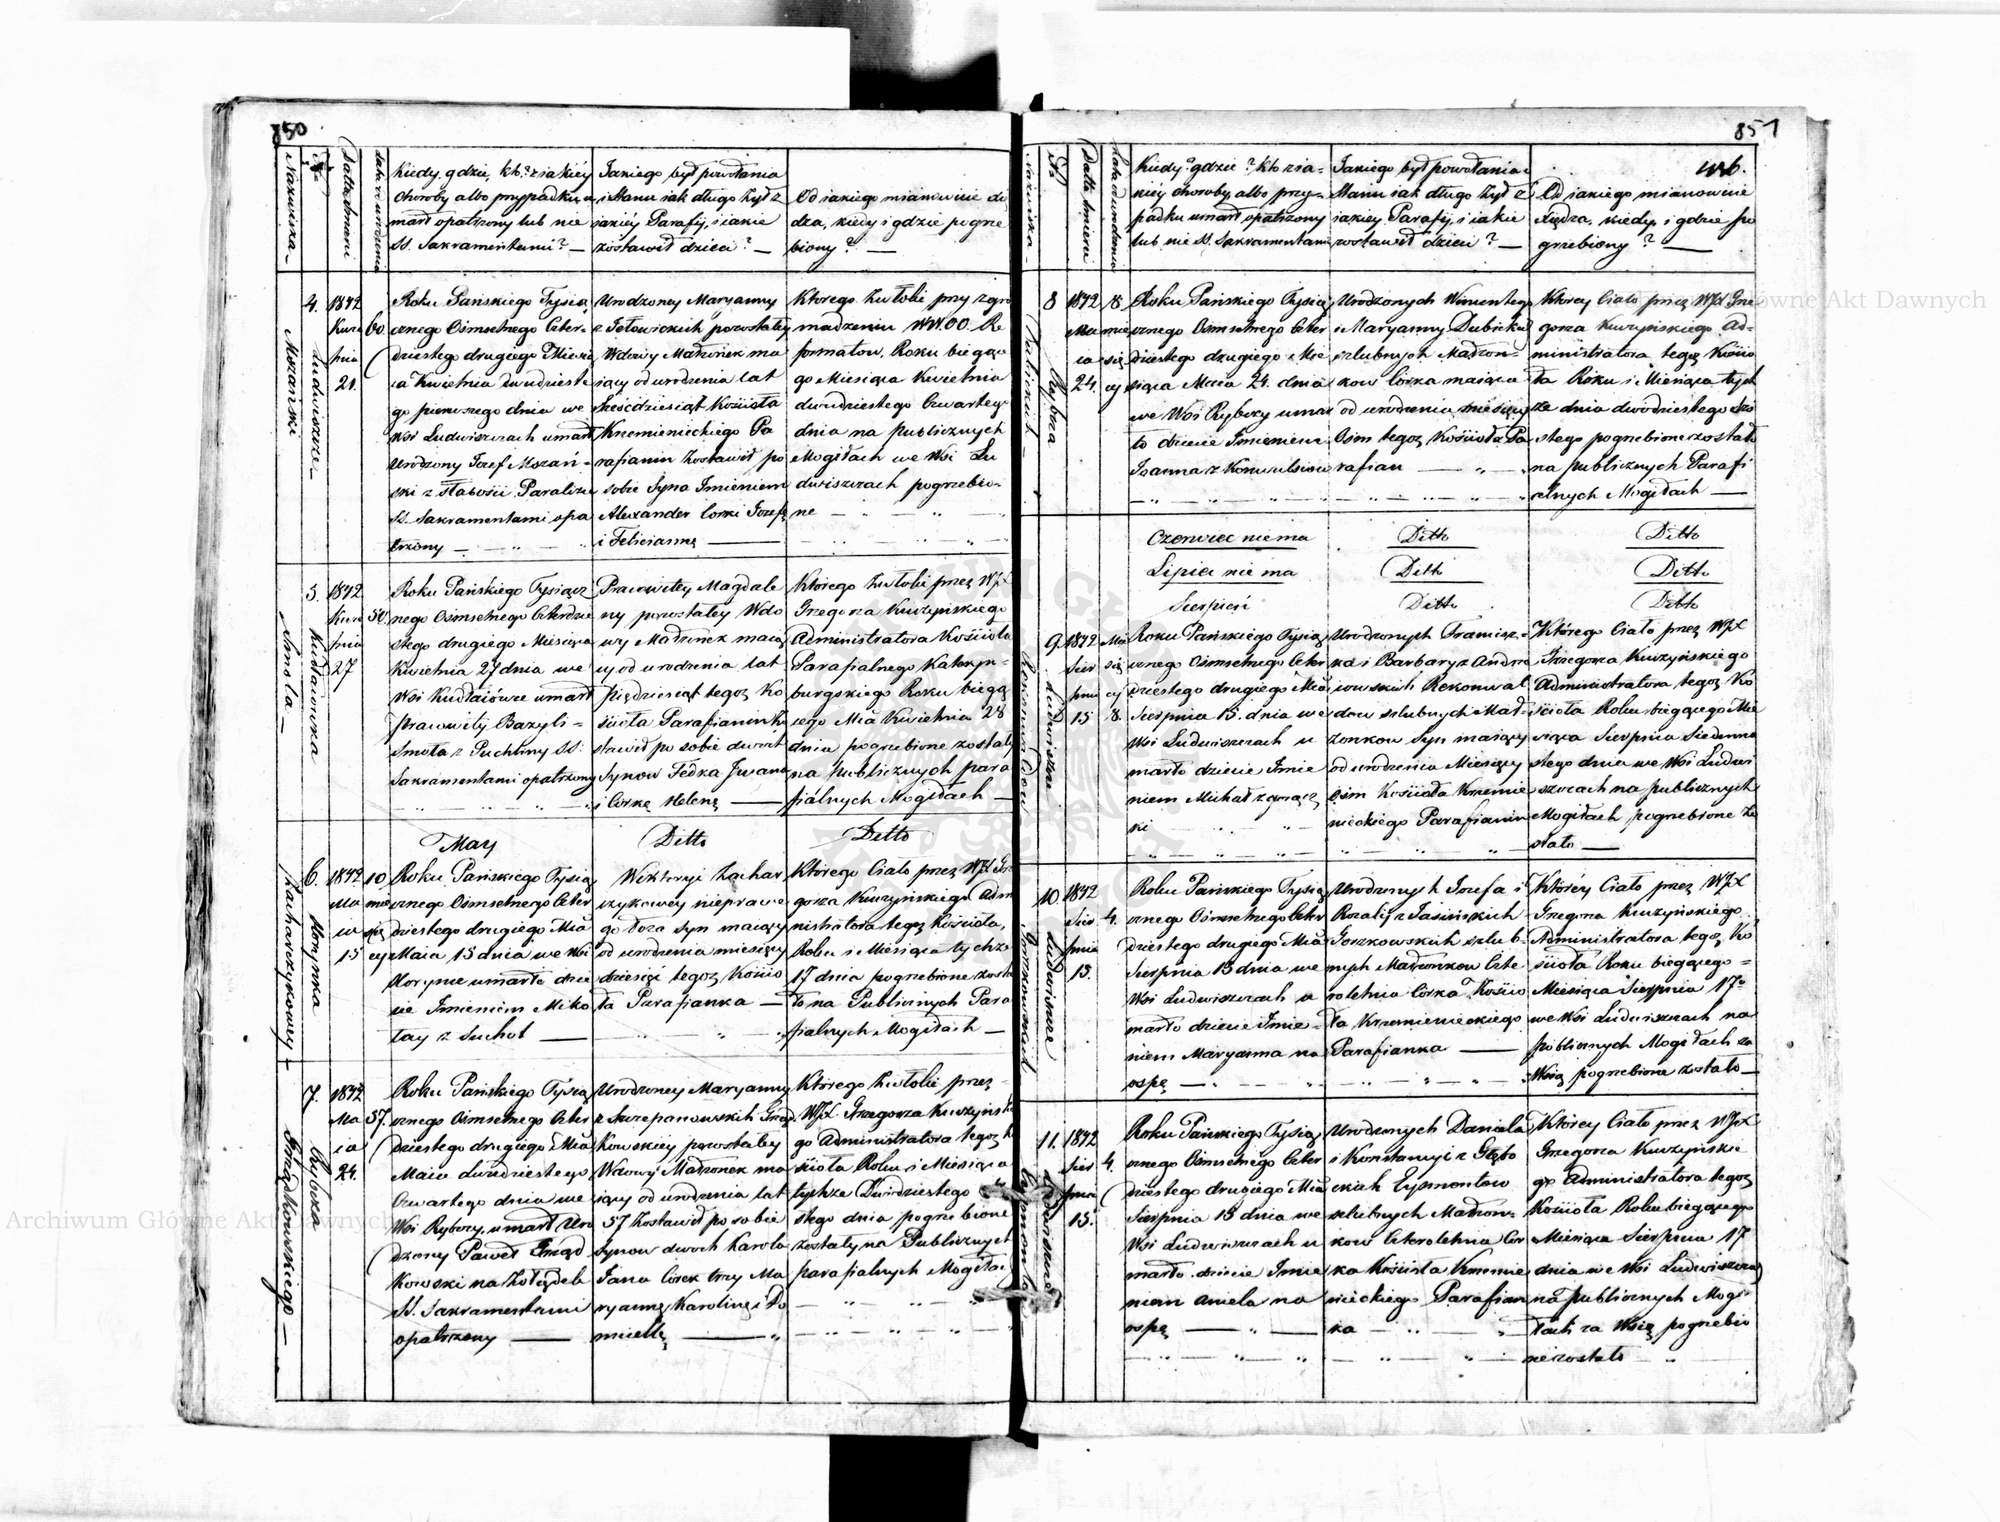 850
Nazwiska
Datta śmierci
Lata od urodzenia
Kiedy, gdzie, kto? z iakiéy
choroby albo przypadku u
marł opatrzony lub nie
SS. Sakramentami? —
Jakiego był powołania
i Stanu iak długo żył z
iakiéy Parafij, i iakie
zostawił dzieci? —
Od iakiego mianowicie
dza, kiedy i gdzie pogrze
biony? —
4.
Mozański
Ludwiszcze
1842
Kwie
tnia
21.
60.
Roku Pańskiego Tysią
cznego Ośmsetnego Czter-
dziestego drugiego Miesią
ca Kwietnia dwudzieste
go pierwszego dnia we
Wsi Ludwiszczach umarł
Urodzony Jozef Mozań-
ski z słabości Paraliżu
SS. Sakramentami opa
trzony —
Urodzoney Maryanny
z Jełowickich pozostałey
Wdowy Małżonek ma
iący od urodzenia lat
Sześćdziesiąt Kościoła
Krzemienieckiego Pa
rafianin Zostawił po
sobie Syna Imieniem
Alexander Corki Jozefę
i Feliciannę —
Ktorego Zwłoki przy zgro
madzeniu WW.OO. Re
formatow, Roku bieżące
go Miesiąca Kwietnia
dwudziestego Czwartego
dnia na publicznych
Mogiłach we Wsi Lu
dwiszczach pogrzebio-
ne —
5.
Smoła —
Kudłaiowka
1842
Kwie
tnia
27
50.
Roku Pańskiego Tysiącz
nego Ośmsetnego Czterdzie
stego drugiego Miesiąca
Kwietnia 27 dnia we
Wsi Kudłaiówce umarł
Pracowity Bazyli-
Smoła z Puchliny SS:
Sakramentami opatrzony
Pracowitey Magdale
ny pozostałey Wdo
wy Małżonek maią
cy od urodzenia lat
pięćdziesiąt tegoż Ko
ścioła Parafianin Zo
stawił po sobie dwóch
Synow Fedka Jwana
i Corkę Helenę —
Ktorego Zwłoki przez WJX
Grzegorza Kuczyńskiego
Administratora Kościoła
Parafialnego Kateryn-
burgskiego Roku bieżą
cego Mca Kwietnia 28
dnia pogrzebione zostały
na publicznych para
fialnych Mogiłach —
May
Ditto
Ditto
6.
Zacharczykowey —
Horynka
1842
Ma
ia
15
10
mie
się
cy
Roku Pańskiego Tysią
cznego Ośmsetnego Czter
dziestego drugiego Mca
Maia 15 dnia we Wsi
Horynce umarło dzie
cie Imieniem Miko
łay z Suchot —
Wiktoryi Zachar
czykowey niepra
go Łoża Syn maiący
od urodzenia miesięcy
dziesięć tegoż Kościo
ła Parafianka —
Ktorego Ciało przez WJX Grze
gorza Kuczyńskiego Adm
nistratora tegoż Kościoła,
Roku i Miesiąca tychże
17 dnia pogrzebione zosta
ło na Publicznych Para
fialnych Mogiłach —
7.
Rybcza
1842
Ma
ia
24.
57.
Roku Pańskiego Tysią
cznego Ośmsetnego Czter
dziestego drugiego Mca
Maia dwudziestego
Czwartego dnia we
Wsi Rybczy, umarł Uro
dzony Paweł Grząd
kowski na Żołądek
SS. Sakramentami
opatrzony —
Urodzoney Maryanny
z Szczepanowskich Grząd
kowskiey pozostałey
Wdowy Małżonek ma
iący od urodzenia lat
57 Zostawił po sobie
Synow dwoch Karola
Jana Córek trzy Ma
ryannę Karolinę i Do
micellę —
Ktorego Zwłoki przez
WJX. Grzegorza Kuczyński
go Administratora tegoż K
ścioła Roku i Miesiąca
tychże Dwudziestego
stego dnia pogrzebione
zostały na Publicznych
parafialnych Mogiłach
851
Datta śmierci
Lata od urodzenia
Kiedy? gdzie? kto z ia-
kiiy choroby, albo przy-
padku umarł opatrzony
lub nie SS. Sakramentami
Jakiego był powołania i
Stanu iak długo żył z
iakiey Parafij, i iakie
zostawił dzieci? —
Od iakiego mianowicie
Xiędza, kiedy, i gdzie po
grzebiony? —
8
Rybcza
1842
Ma
ia
24.
8.
mie
się
cy
Roku Pańskiego Tysią
cznego Ośmsetnego Czter
dziestego drugiego Mie
siąca Maia 24. dnia
we Wsi Rybczy umar
ło dziecie Imieniem
Joanna z Konwulsiow
Urodzonych Wincentego
i Maryanny Dubickich
szlubnych Małżon-
kow Corka maiąca
od urodzenia miesięcy
Ośm tegoż Kościoła Pa
rafian —
Ktorey Ciało przez WJX Grze
gorza Kuczyńskiego Ad-
ministratora tegoż Kościo
ła Roku i Miesiąca tych
że dnia dwudziestego szo
stego pogrzebione zostało
na publicznych Parafi
alnych Mogiłach —
Czerwiec niema
Ditto
Ditto
Lipiec nie ma
Ditto
Ditto
Sierpień
Ditto
Ditto
9.
Ludwiszcze
1842
Sier
pnia
15
Mie
się
cy
8.
Roku Pańskiego Tysią
cznego Ośmsetnego Czter
dziestego drugiego Mca
Sierpnia 15. dnia we
Wsi Ludwiszczach u
marło dziecie Imie
niem Michał z gorącz
ki
Urodzonych Francisz-
ka i Barbary z Andrze
iowskich Rekonwal
dow szlubnych Mał-
żonkow Syn maiący
od urodzenia Miesięcy
Ośm Kościoła Krzemie
nieckiego Parafianin
Którego Ciało przez WJX
Grzegorza Kuczyńskiego
Administratora tegoż Ko
ścioła Roku bieżącego Mie
siąca Sierpnia Siedmna
stego dnia we Wsi Ludwi
szczach na publicznych
Mogiłach pogrzebione Zo
stało —
10.
Goszkowskich
Ludwiszcze
1842
Sier
pnia
15.
4.
Roku Pańskiego Tysią
cznego Ośmsetnego Czter
dziestego drugiego Mca
Sierpnia 15 dnia we
Wsi Ludwiszczach u
marło dziecie Imie-
niem Maryanna na
ospę —
Urodzonych Jozefa i
Rozalij z Jasińskich
Goszkowskich szlub-
nych Małżonkow Czte
roletnia Córka Kościo
ła Krzemienieckiego
Parafianka —
Któréy Ciało przez WJX
Grzegorza Kuczyńskiego
Administratora tegoż Ko
ścioła Roku bieżącego =
Miesiąca Sierpnia 17o
we Wsi Ludwiszczach na
publicznych Mogiłach za
Wsią pogrzebione zostało —
11.
1842
Sier
pnia
15.
4.
Roku Pańskiego Tysią
cznego Ośmsetnego Czter
dziestego drugiego Mca
Sierpnia 15 dnia we
Wsi Ludwiszczach u
marło dziecie Imie
niem Aniela na
ospę —
Urodzonych Daniela
i Konstancyi z Głębo
ckich Eysmontow
szlubnych Małżon-
kow Czteroletnia Cor
ka Kościoła Krzemie
nieckiego Parafian
ka —
Ktorey Ciało przez WJX
Grzegorza Kuczyńskie
go Administratora tegoż
Kościoła Roku bieżącego
Miesiąca Sierpnia 17
dnia we Wsi Ludwiszczach
na publicznych Mogi-
łach za Wsią pogrzebio
ne zostało
Archiwum Główne Akt Dawnych